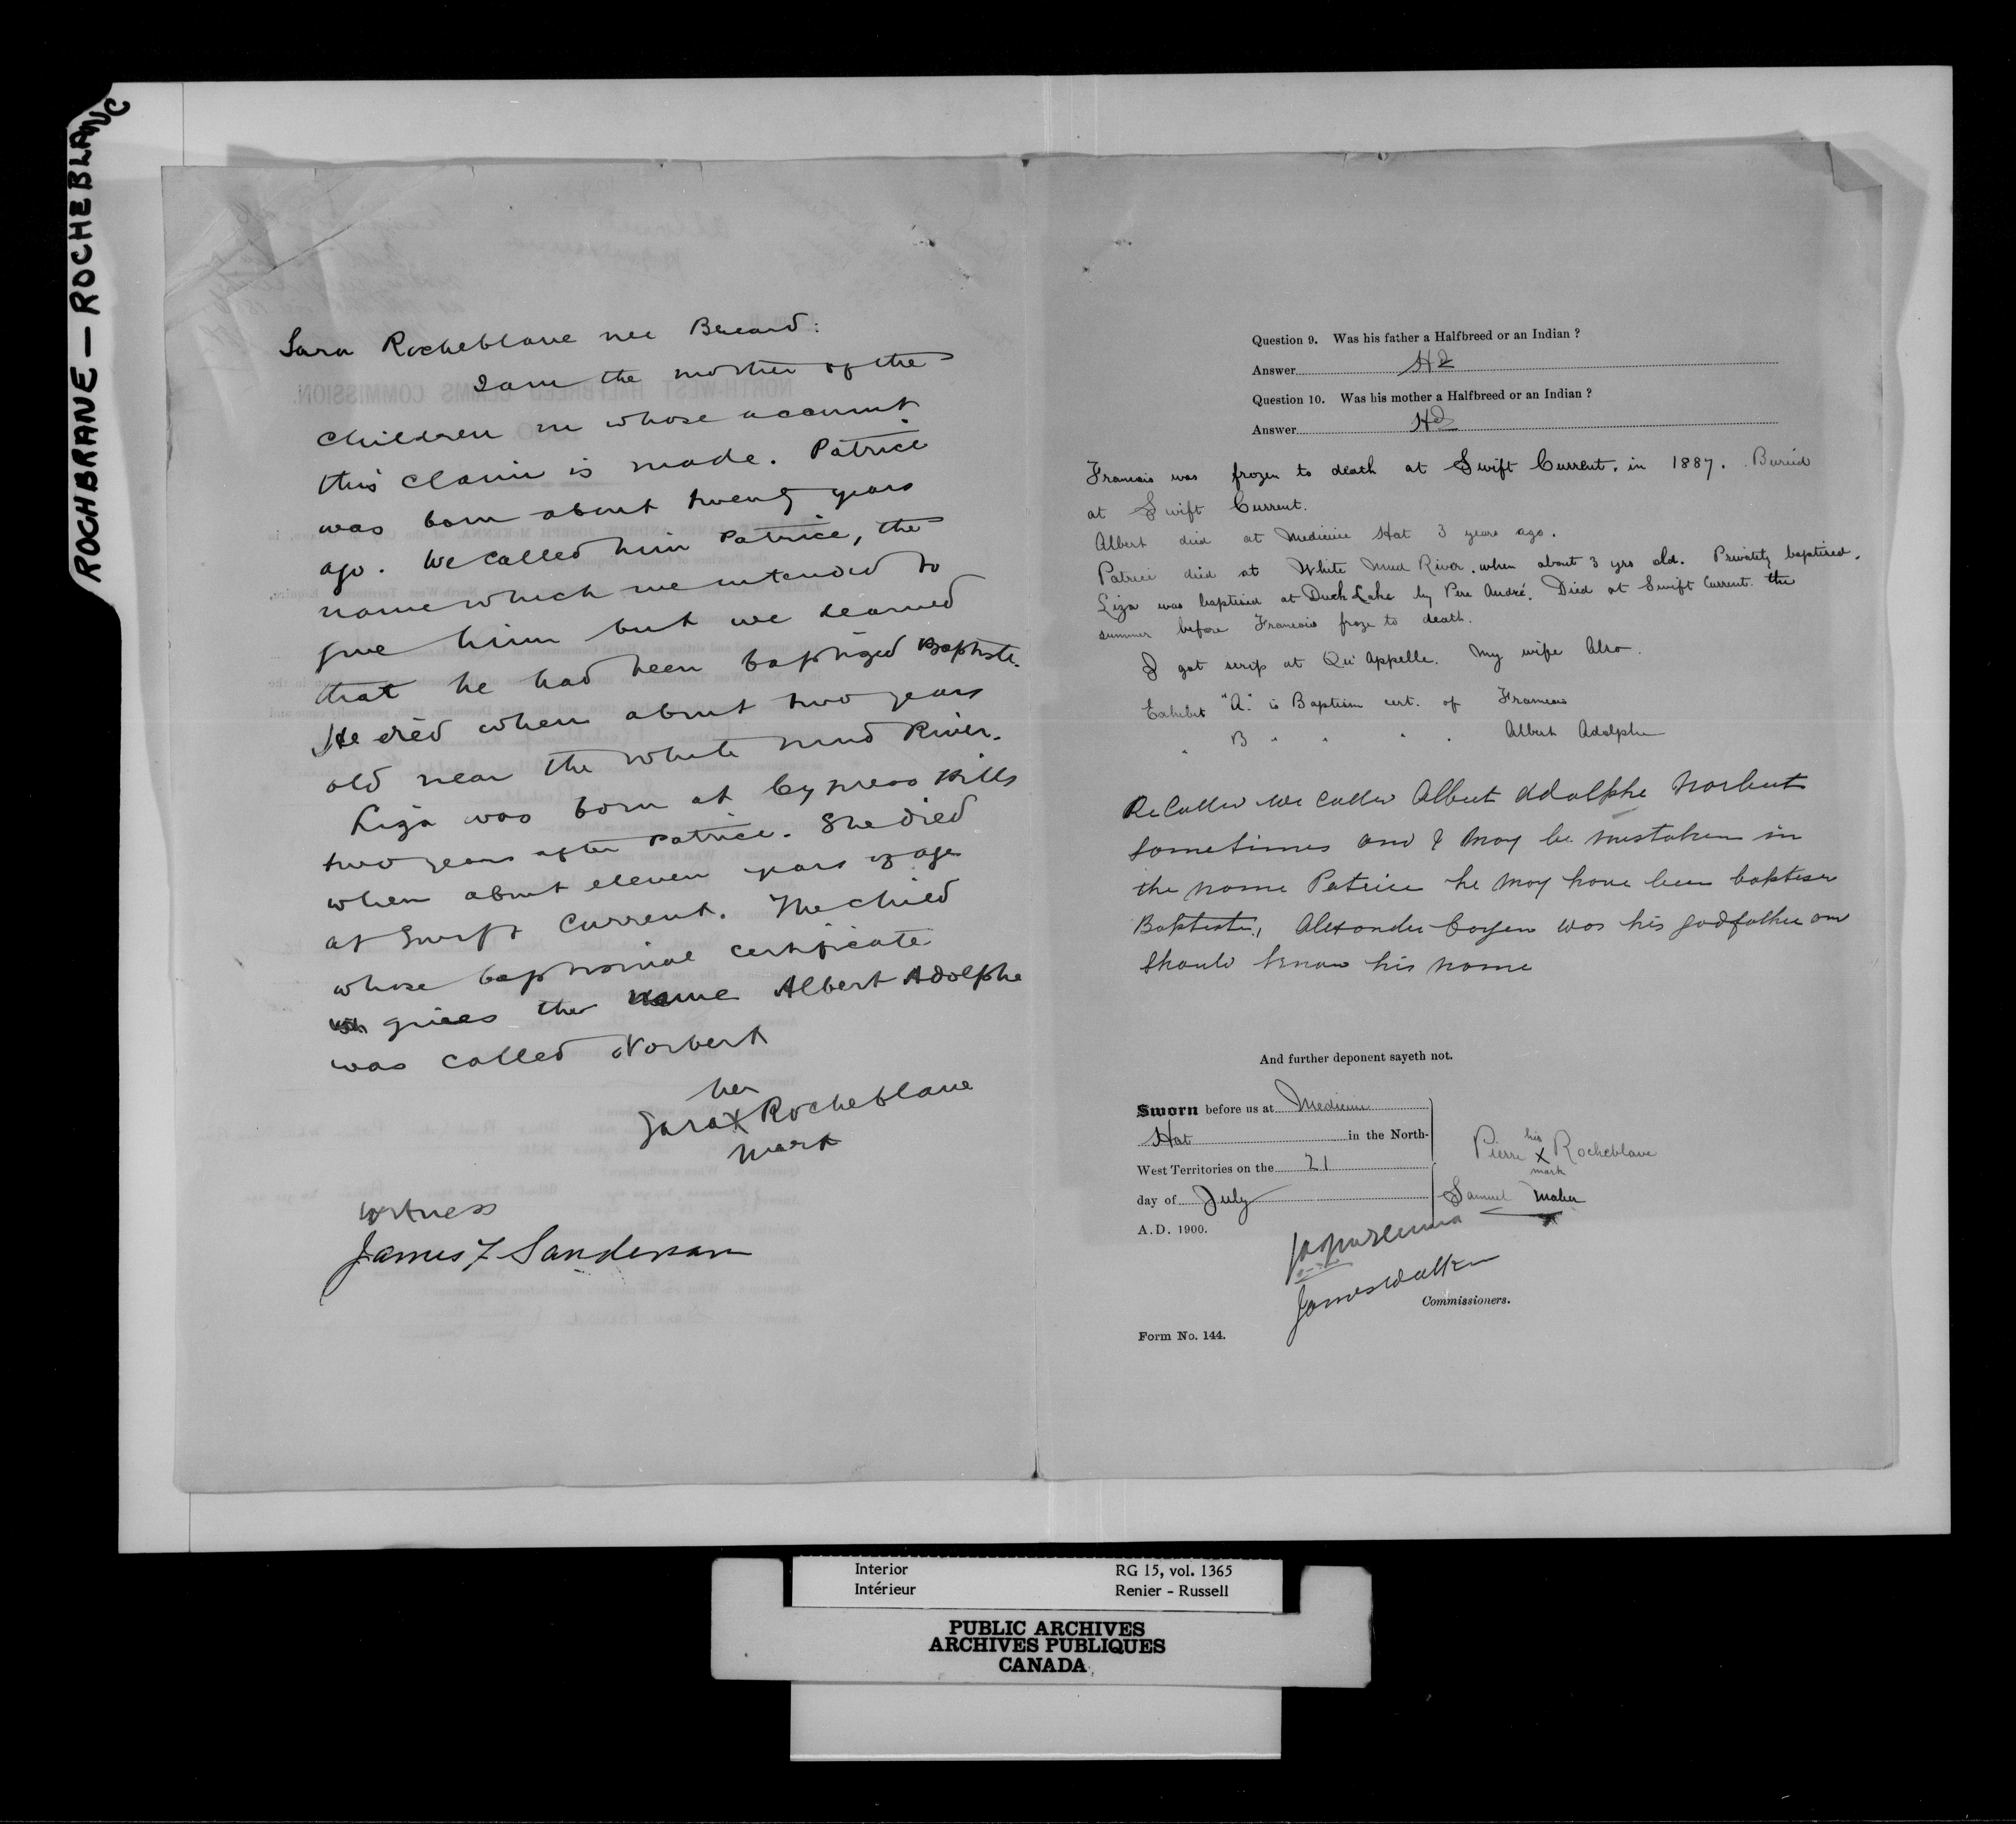 ROCHBRANE — ROCHEBLANC
Sara Rocheblave nee Beeard:
I am the mother of the
children on whose account
this claim is made. Patrice
was born about twenty years
ago. We called him Patrice, the
name which we intended to
give him but we learned
that he had been baptized Baptiste.
He died when about two years
old near the White Mud River.
Liza was born at Cypress Hills
two years after Patrice. She died
when about eleven years of age
at Swift Current. The child
whose baptismal certificate
gives the name Albert Adolphe
was called Norbert
her
Sara X Rocheblave
mark
Witness
James F Sanderson
Question 9. Was his father a Halfbreed or an Indian ?
Answer HB
Question 10. Was his mother a Halfbreed or an Indian ?
Answer HB
Francois was frozen to death at Swift Current. in 1887. Buried
at Swift Current.
Albert died at Medicine Hat 3 years ago.
Patrice died at White Mud River. when about 3 yrs old. Privately baptised.
Liza was baptised at Duck Lake by Pere André. Died at Swift Current. the
summer before Francois froze to death.
I got scrip at Qu'Appelle. My wife Also.
Exhibit "A." is Baptism cert. of Francois
" B " " " " Albert Adolphe
ReCalled We Called Albert Adolphe Norbert
sometimes and I may be mistaken in
the name Patrice he may have been baptised
Baptiste, Alexander was his godfather and
should know his name
And further deponent sayeth not.
Sworn before us at Medicine
Hat in the North-
West Territories on the 21
day of July
A.D. 1900.
his
Pierre X Rocheblave
mark
Samuel Maher
JAJMcKenna
James Walker
Commissioners.
Form No. 144.
Interior RG 15, vol. 1365
Intérieur Renier - Russell
PUBLIC ARCHIVES
ARCHIVES PUBLIQUES
CANADA